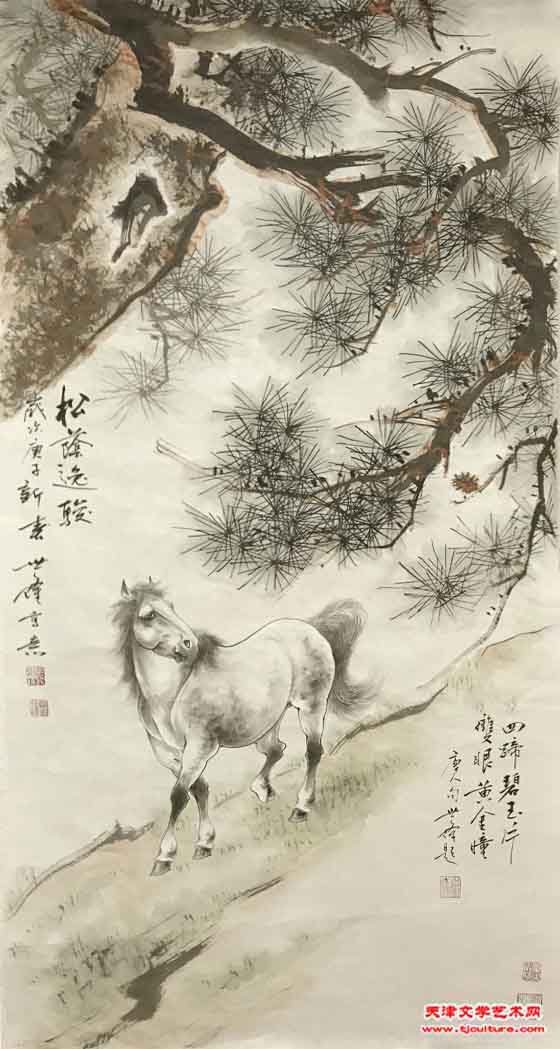 松蔭逸駿
歲次庚子新春世偉寫意
四蹄碧玉片
雙眼黃金瞳
唐人句世偉題
天津文学艺术网
www.tjculture.com